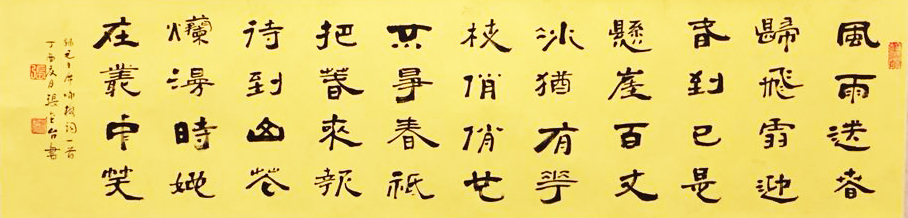 風雨送春
歸飛雪迎
春到已是
懸崖百丈
冰猶有華
枝俏俏也
不爭春祇
把春來報
待到山花
爛漫時她
在叢中笑
毛主席咏梅詞一首
丁酉 月張 台書